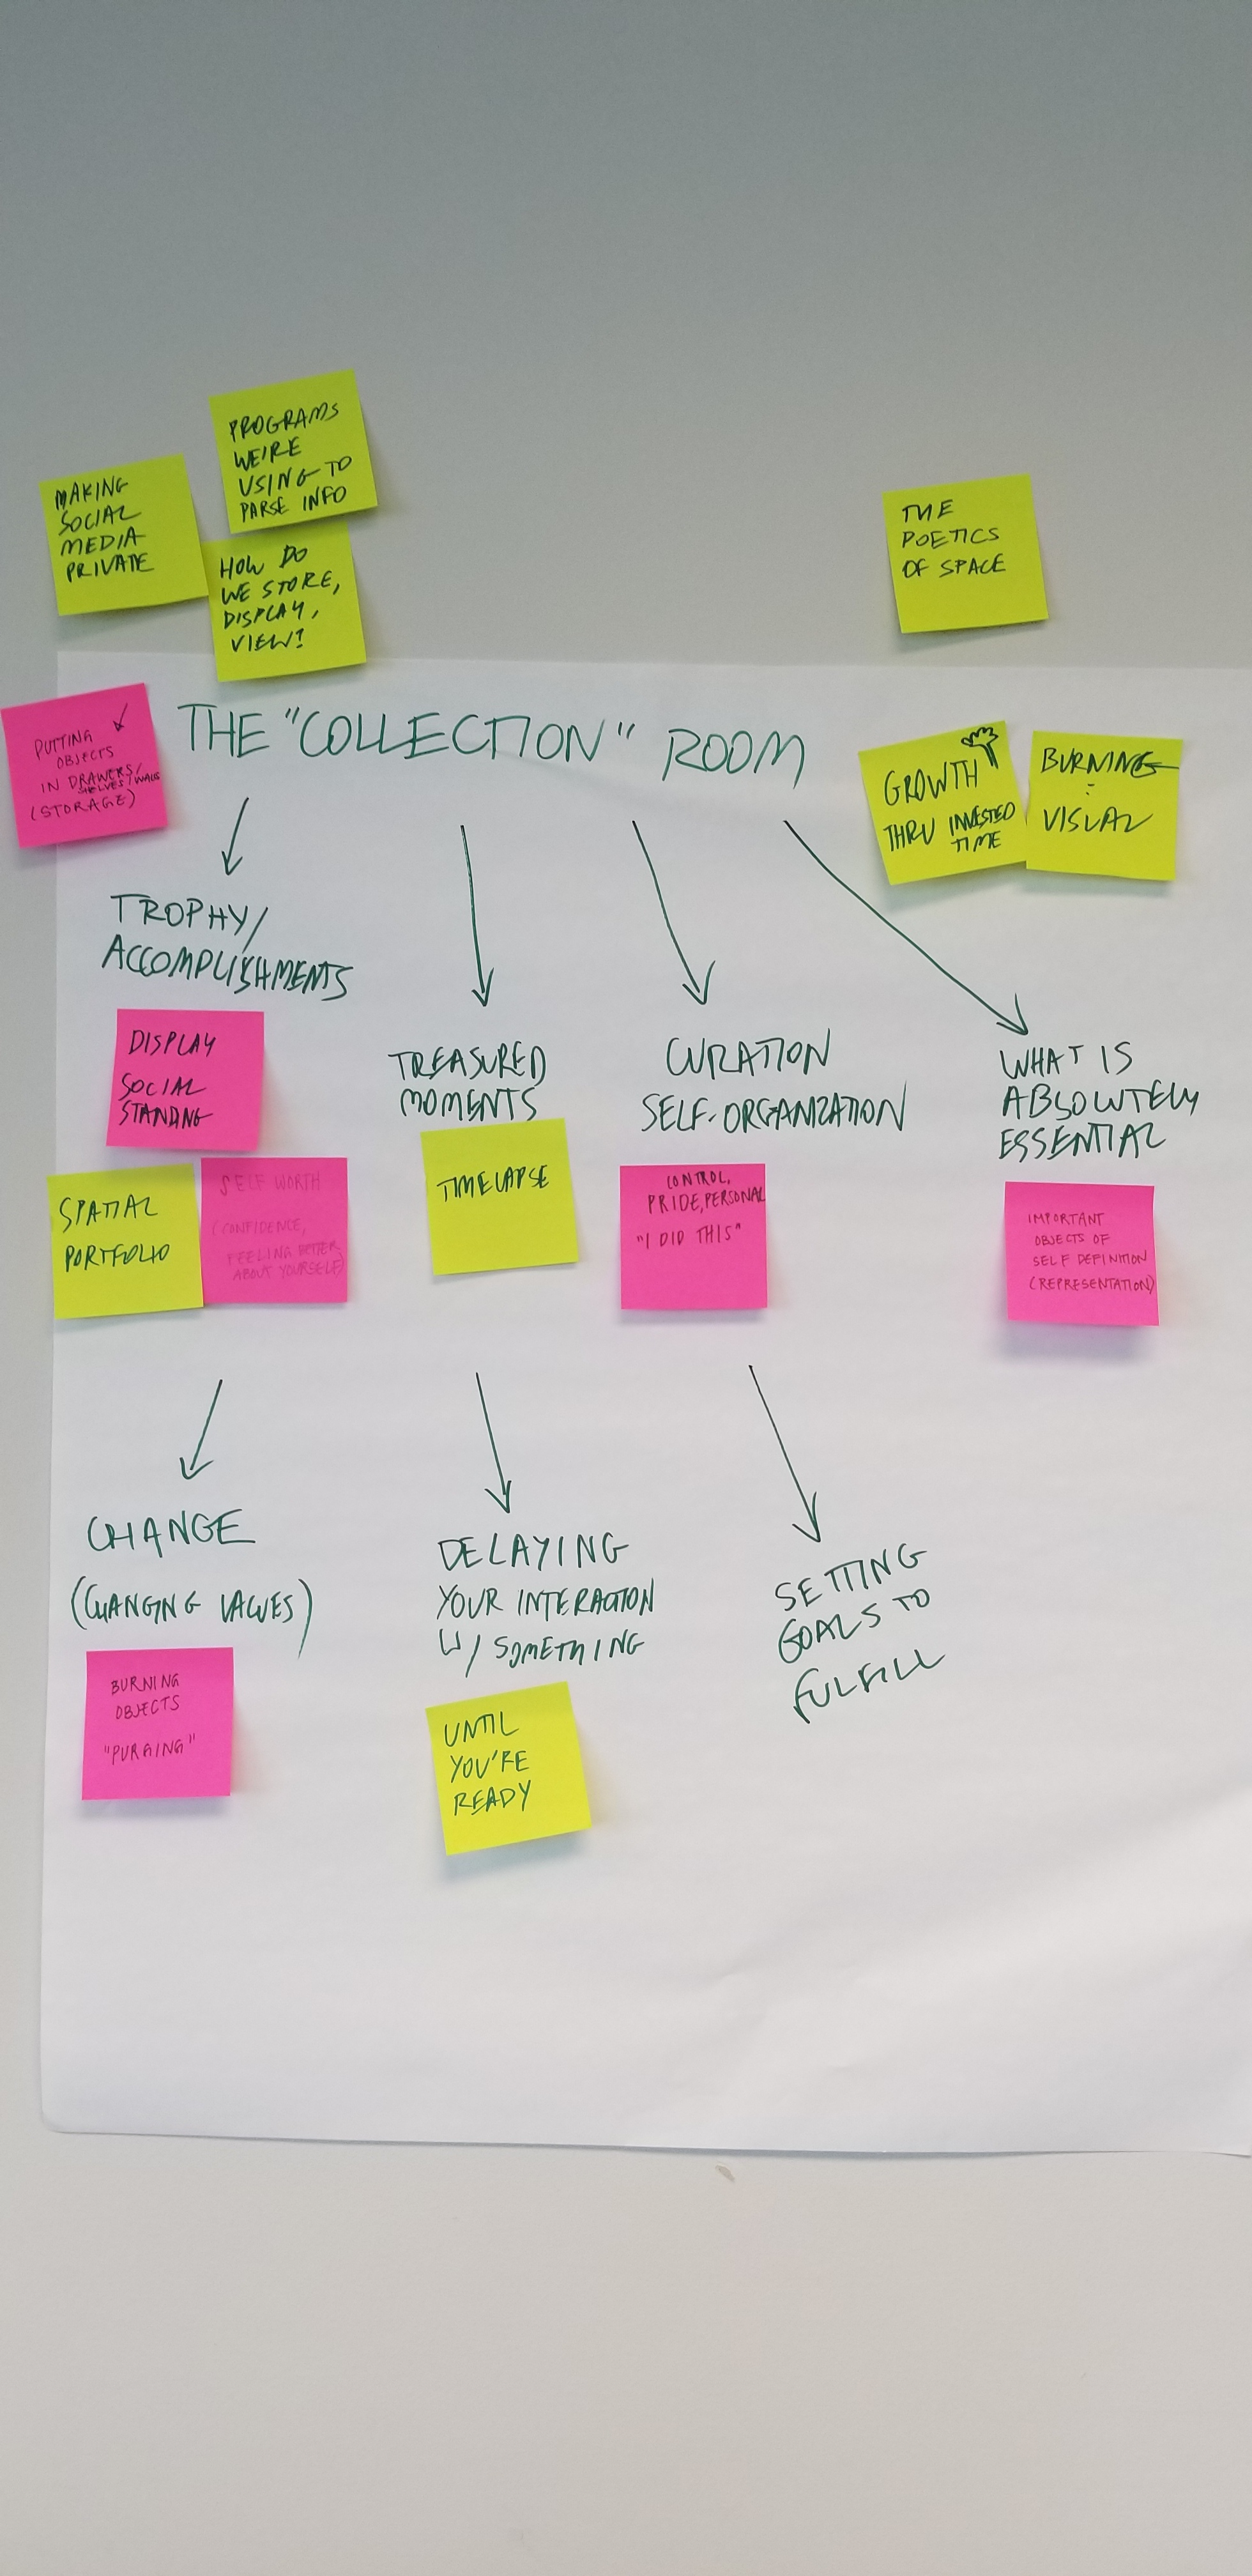 PROGRAMS
WE'RE
USING TO
PARSE INFO
MAKING
SOCIAL
MEDIA
PRIVATE
HOW DO
WE STORE,
DISPLAY,
VIEW?
THE
POETICS
OF SPACE
PUTTING
OBJECTS
IN DRAWERS/
SHELVES/WALLS
(STORAGE)
THE "COLLECTION" ROOM
GROWTH
THRU INVESTED
TIME
BURNING
:
VISUAL
TROPHY/
ACCOMPLISHMENTS
DISPLAY
SOCIAL
STANDING
SPATIAL
PORTFOLIO
SELF WORTH
(CONFIDENCE,
FEELING BETTER
ABOUT YOURSELF)
TREASURED
MOMENTS
TIMELAPSE
CURATION
SELF-ORGANIZATION
CONTROL,
PRIDE, PERSONAL
"I DID THIS"
WHAT IS
ABSOLUTELY
ESSENTIAL
IMPORTANT
OBJECTS OF
SELF DEFINITION
(REPRESENTATION)
CHANGE
(CHANGING VALUES)
BURNING
OBJECTS
"PURGING"
DELAYING
YOUR INTERACTION
W/ SOMETHING
UNTIL
YOU'RE
READY
SETTING
GOALS TO
FULFILL